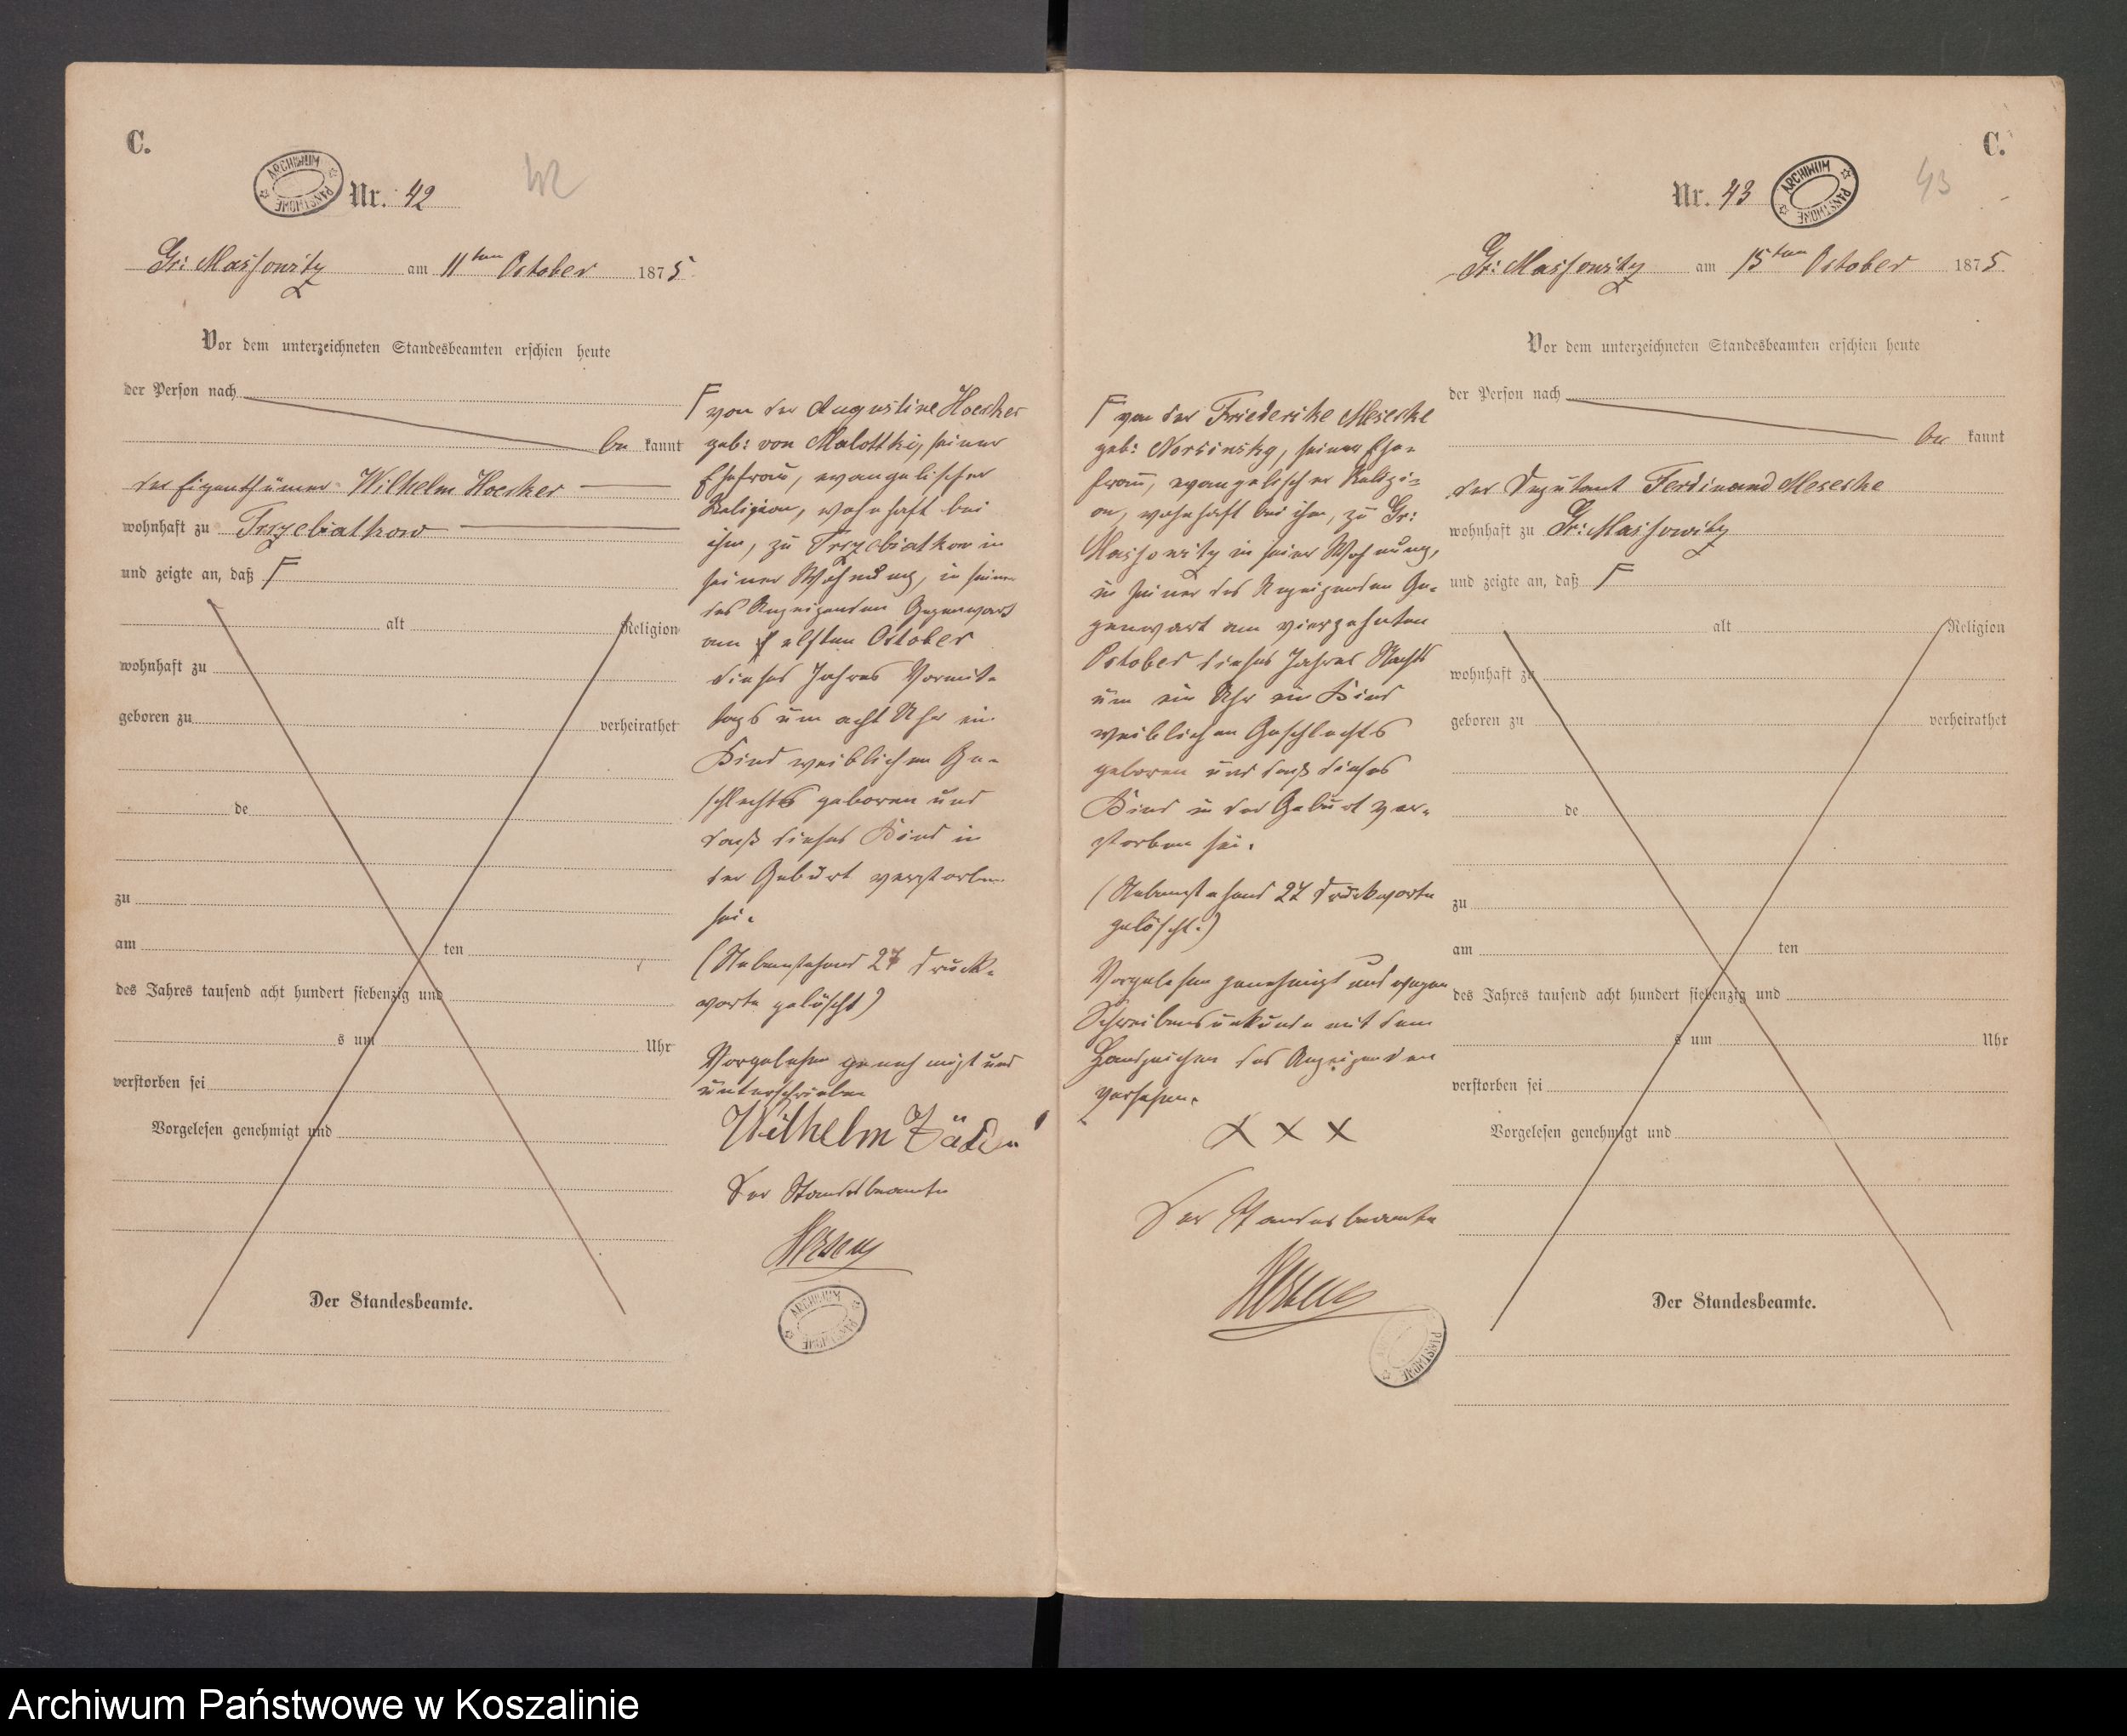 C.
ARCHIWUM PAŃSTWOWE
Nr. 42
42
Gr: Massowitz am 11ten October 1875.
Vor dem unterzeichneten Standesbeamten erschien heute
der Person nach
be kannt
der Eigenthümer Wilhelm Hoecker
wohnhaft zu Trzebiatkow
und zeigte an, daß Γ
alt Religion
wohnhaft zu
geboren zu verheirathet
de
zu
am ten
des Jahres tausend acht hundert siebenzig und
s um Uhr
verstorben sei
Vorgelesen genehmigt und
Der Standesbeamte.
Γ von der Augustine Hoecker
geb: von Malottki, seiner
Ehefrau, evangelischer
Religion, wohnhaft bei
ihm, zu Trzebiatkow in
seiner Wohnung, in seiner
des Anzeigenden Gegenwart
am elften October
dieses Jahres Vormit-
tags um acht Uhr ein
Kind weiblichen Ge-
schlechts geboren und
daß dieses Kind in
der Geburt verstorben
sei.
(Nebenstehend 27 Druck-
worte gelöscht)
Vorgelesen genehmigt und
unterschrieben
Wilhelm
Der Standesbeamte
ARCHIWUM PAŃSTWOWE
C.
Nr. 43
ARCHIWUM PAŃSTWOWE
43
Gr: Massowitz am 15ten October 1875.
Vor dem unterzeichneten Standesbeamten erschien heute
der Person nach
be kannt
der Deputant Ferdinand Meseske
wohnhaft zu Gr: Massowitz
und zeigte an, daß Γ
alt Religion
wohnhaft zu
geboren zu verheirathet
de
zu
am ten
des Jahres tausend acht hundert siebenzig und
s um Uhr
verstorben sei
Vorgelesen genehmigt und
Der Standesbeamte.
Γ von der Friedericke Meseske
geb: Norsinsky, seiner Ehe-
frau, evangelischer Religi-
on, wohnhaft bei ihm, zu Gr:
Massowitz in seiner Wohnung,
in seiner des Anzeigenden Ge-
genwart am vierzehnten
October dieses Jahres Nachts
um ein Uhr ein Kind
weiblichen Geschlechts
geboren und daß dieses
Kind in der Geburt ver-
storben sei.
(Nebenstehend 27 Druckworte
gelöscht.)
Vorgelesen genehmigt und wegen
Schreibensunkunde mit dem
Handzeichen des Anzeigenden
versehen.
X X X
Der Standesbeamte
PAŃSTWOWE
Archiwum Państwowe w Koszalinie